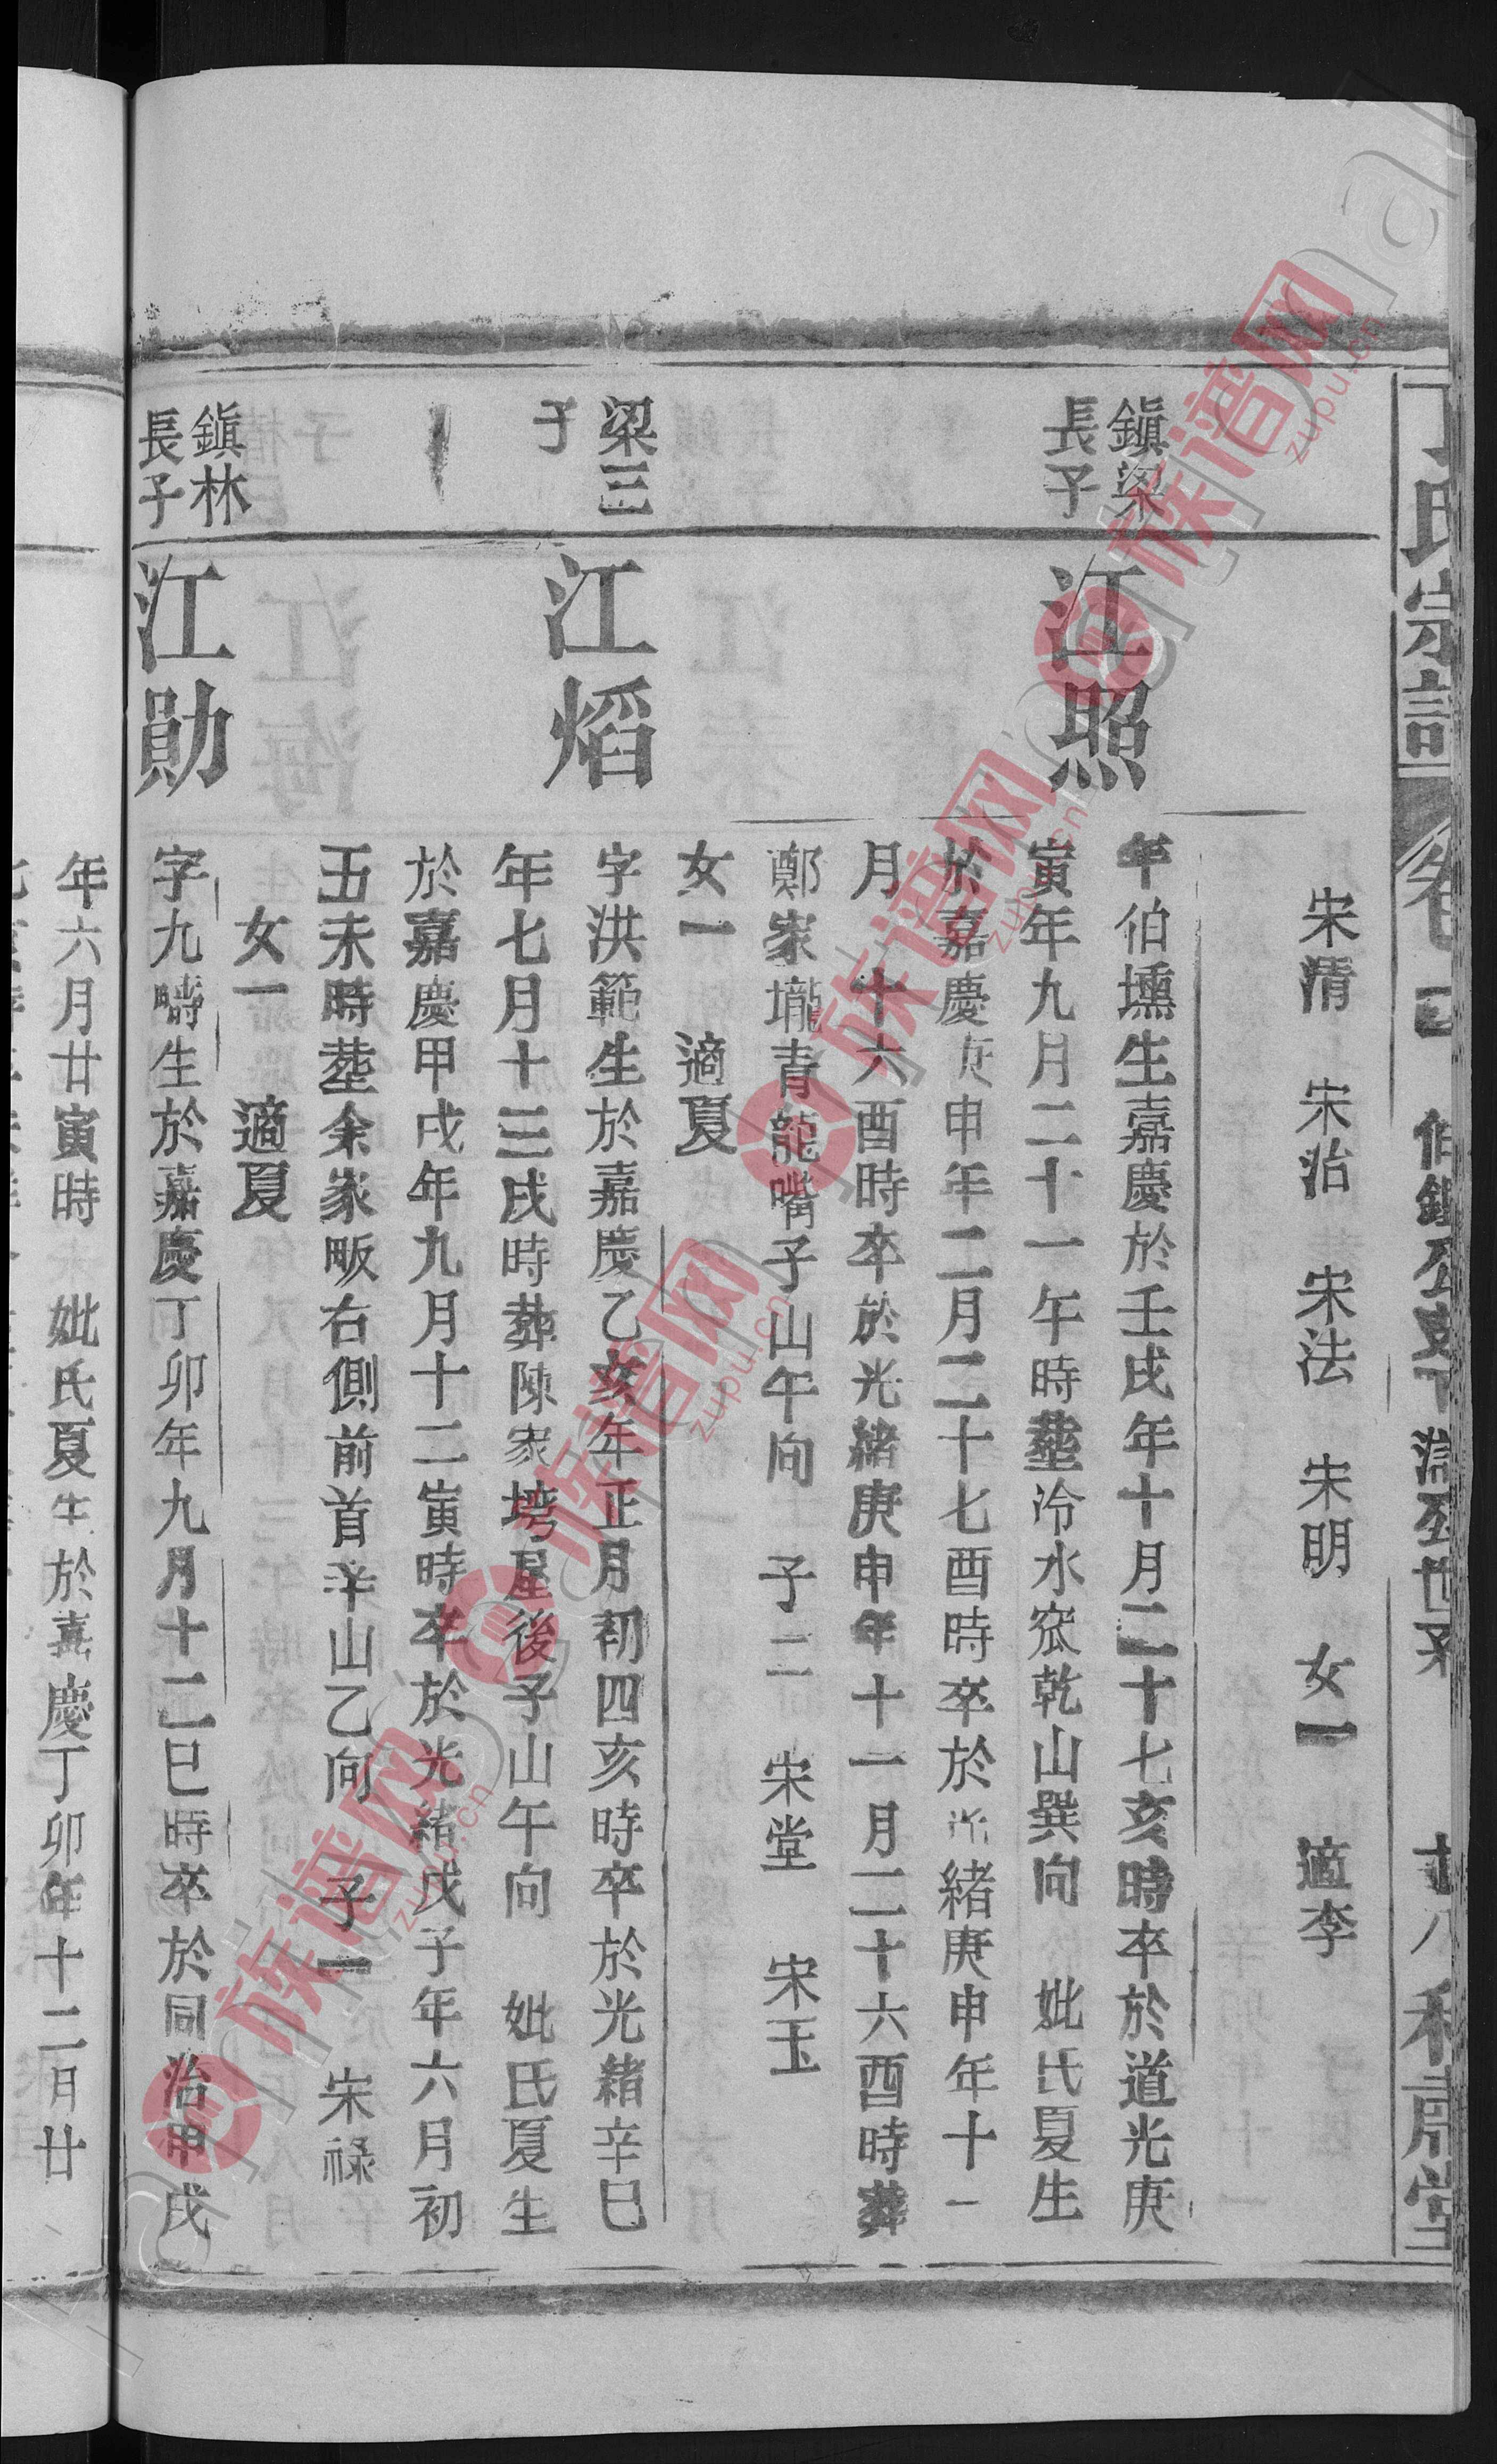 氏宗譜
宋清　宋治　宋法　宋明　女一　適李
鎮梁
長子
江照
年伯壎生嘉慶於壬戌年十月二十七亥時卒於道光庚
寅年九月二十一午時塟冷水窊乾山巽向　妣氏夏生
於嘉慶庚申年二月二十七酉時卒於光緒庚申年十一
月十六酉時卒於光緒庚申年十一月二十六酉時葬
鄭家壠青龍嘴子山午向　子二　宋堂　宋玉
女一　適夏
梁三
子
江熖
字洪範生於嘉慶乙亥年正月初四亥時卒於光緒辛巳
年七月十三戌時葬陳家塆屋後子山午向　妣氏夏生
於嘉慶甲戌年九月十二寅時卒於光緒戊子年六月初
五未時塟余家畈右側前首辛山乙向　子一　宋祿
女一　適夏
鎮林
長子
江勛
字九疇生於嘉慶丁卯年九月十二巳時卒於同治甲戌
年六月廿寅時　妣氏夏生於嘉慶丁卯年十二月廿
族谱网
zupu.cn